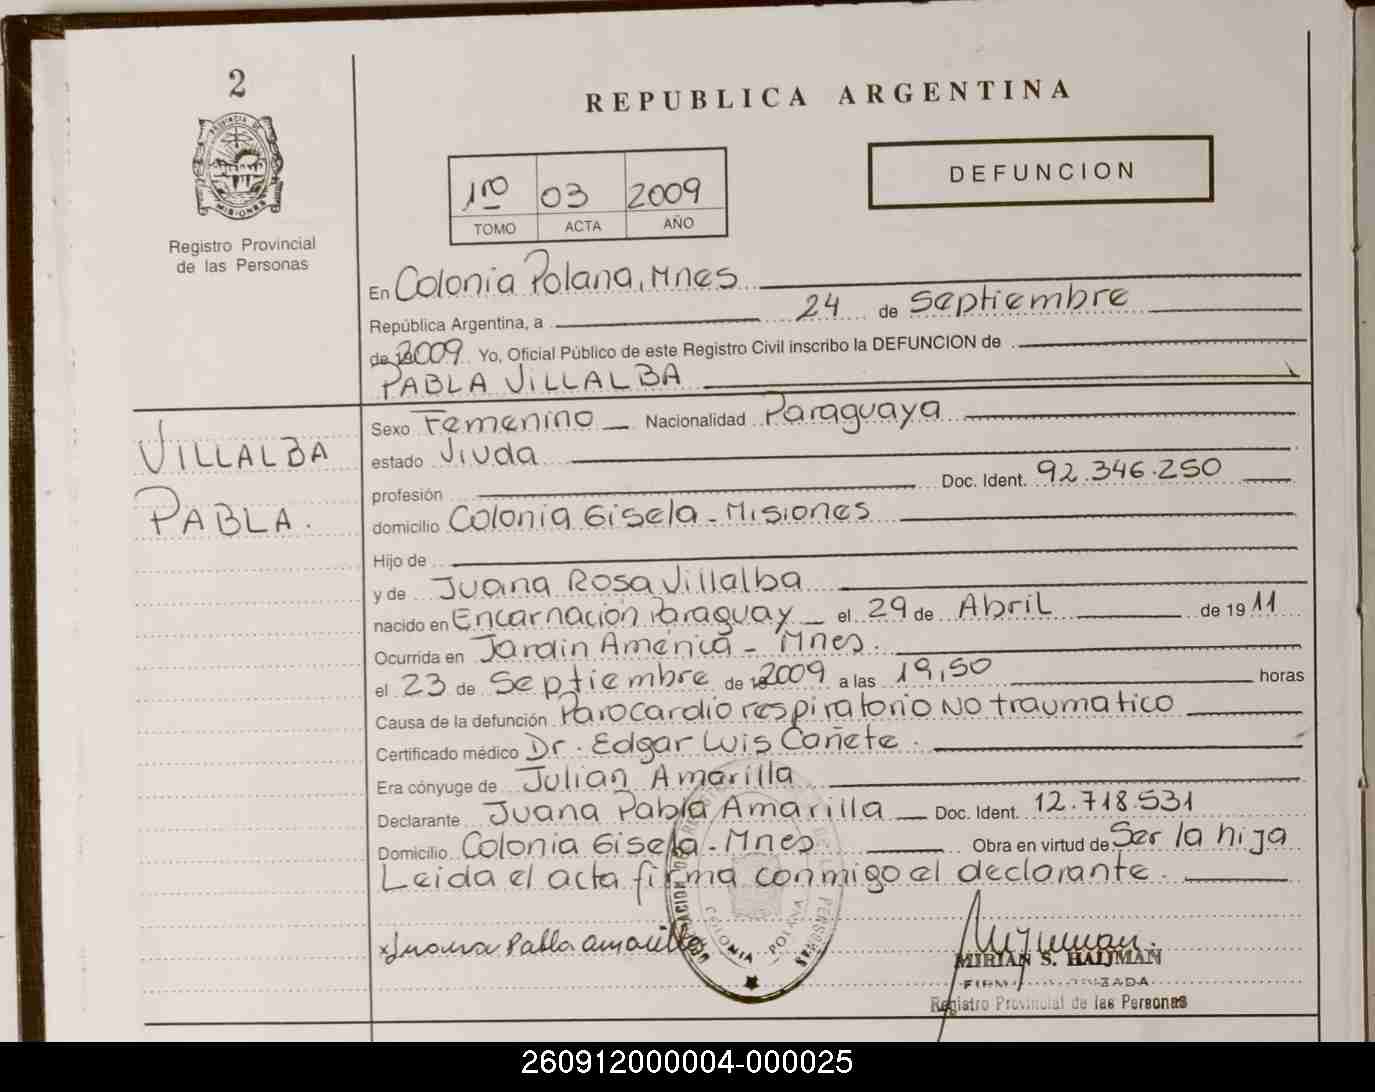 2
PROVINCIA DE
MISIONES
Registro Provincial
de las Personas
REPUBLICA ARGENTINA
1ro 03 2009
TOMO ACTA AÑO
DEFUNCION
En Colonia Polana, Mnes
República Argentina, a 24 de Septiembre
de 2009 Yo, Oficial Público de este Registro Civil inscribo la DEFUNCION de
PABLA VILLALBA
VILLALBA
PABLA.
Sexo Femenino Nacionalidad Paraguaya
estado Viuda
profesión Doc. Ident. 92.346.250
domicilio Colonia Gisela - Misiones
Hijo de
y de Juana Rosa Villalba
nacido en Encarnación Paraguay el 29 de Abril de 1911
Ocurrida en Jardin América - Mnes.
el 23 de Septiembre de 2009 a las 19,50 horas
Causa de la defunción Parocardio respiratorio No traumatico
Certificado médico Dr. Edgar Luis Cañete.
Era cónyuge de Julian Amarilla
Declarante Juana Pabla Amarilla Doc. Ident. 12.718.531
Domicilio Colonia Gisela - Mnes Obra en virtud de Ser la hija
Leida el acta firma conmigo el declarante.
x Juana Pabla amarilla
COLONIA POLANA
MIRIAN S. HAIJMAN
Registro Provincial de las Personas
260912000004-000025